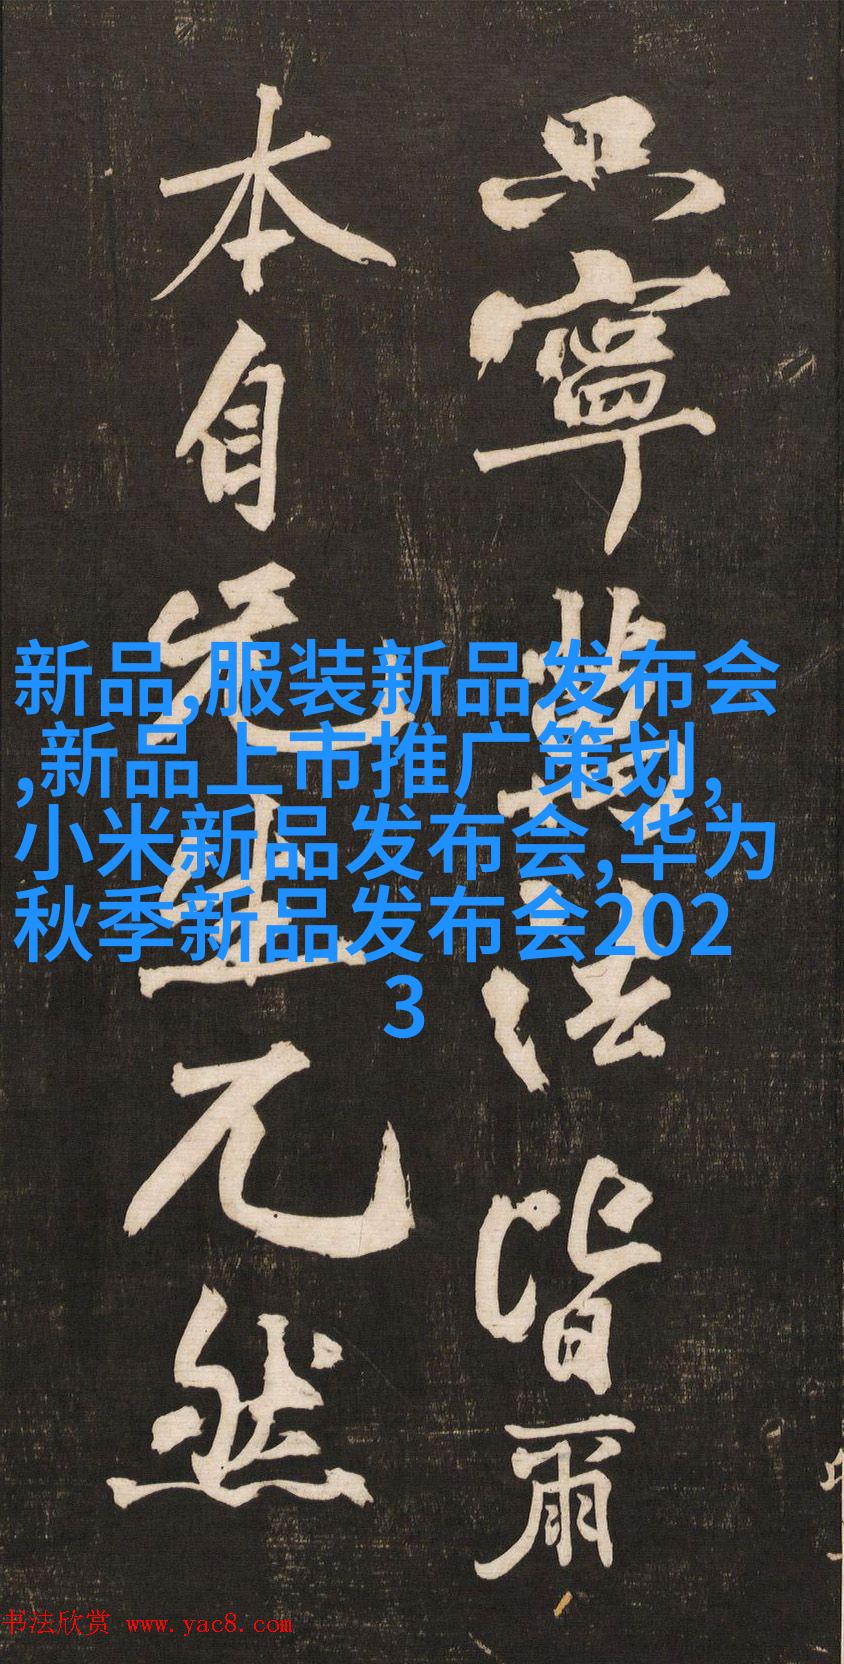 只寧萬法皆爾
本自光虫兀然
新品,服装新品发布会
,新品上市推广策划,
小米新品发布会,华为
秋季新品发布会202
3
书法欣赏 www.yac8.com